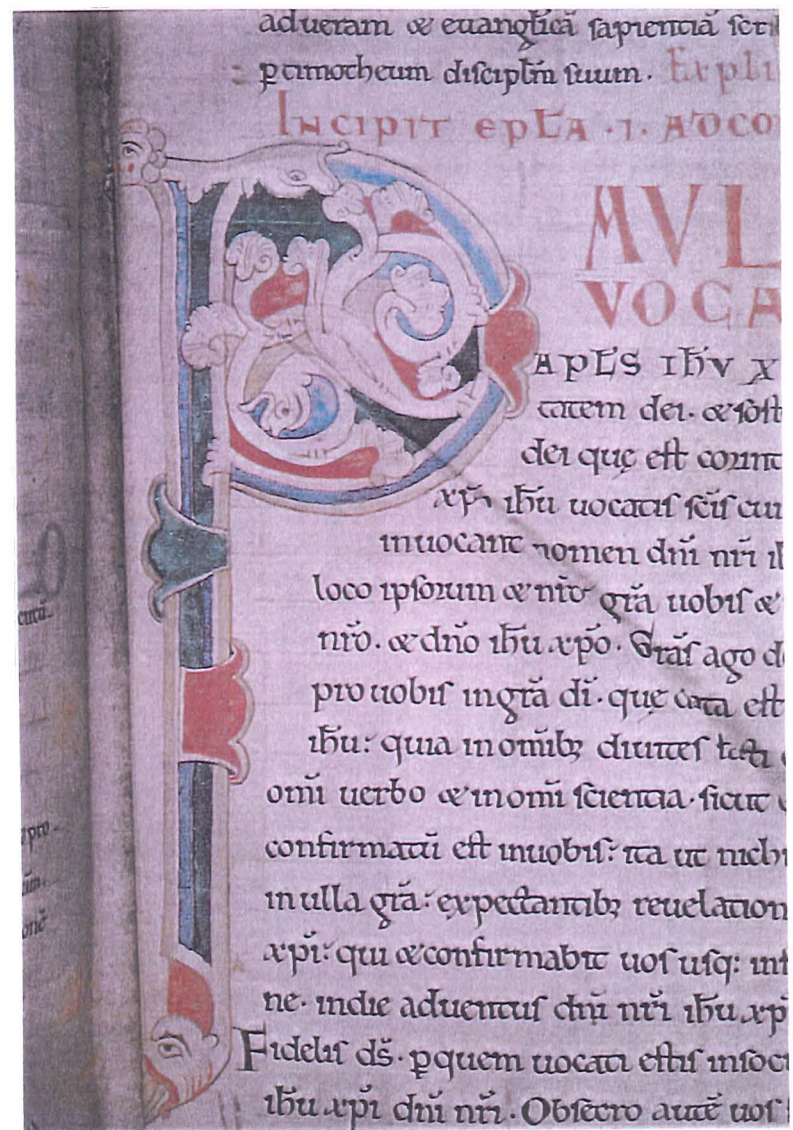 adueram & euangl̄icā sapientiā scri
ꝑ timotheum discipl̄m suum. Expli
INCIPIT EPL̄A .I. AD CO
P AVL
VOCA
APL̄S IH̄V X
tatem dei. & sost
dei quę est corint
xp̄o ih̄u uocatis sc̄is cui
inuocant nomen dn̄i nr̄i ih
loco ipsorum & nr̄o gr̄a uobis &
nr̄o. & dn̄o ih̄u xp̄o. Gr̄as ago d
pro uobis in gr̄a dī. quę data est
ih̄u: quia in om̄ibꝫ diuites facti
om̄i uerbo & in om̄i scientia. sicut
confirmatū est in uobis: ita ut nichi
in ulla gr̄a: expectantibꝫ reuelation
xp̄i: qui & confirmabit uos usq: in f
ne. in die aduentus dn̄i nr̄i ih̄u xp
Fidelis ds̄. ꝑ quem uocati estis in soci
ih̄u xp̄i dn̄i nr̄i. Obsecro autē uos